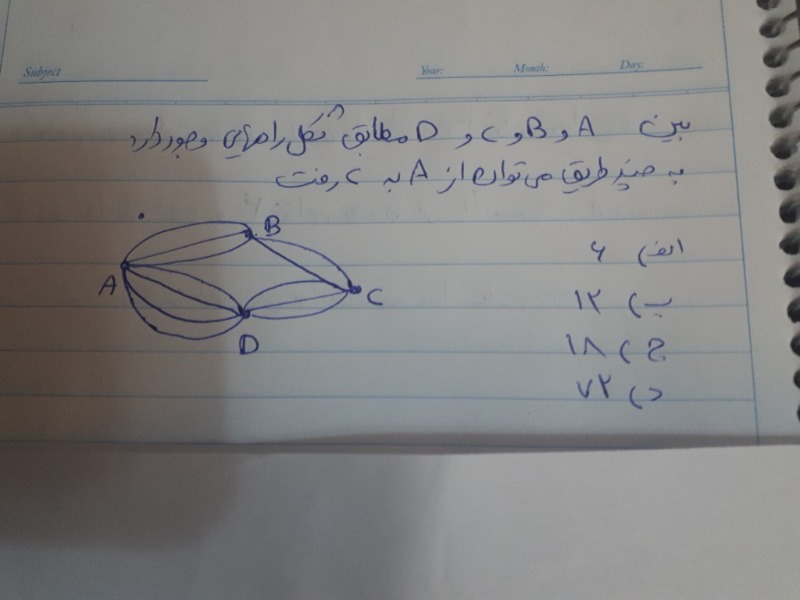 Subject
Year: Month: Day:
بین A و B و C و D مطابق شکل راههایی وجود دارد
به چند طریق می توان از A به C رفت
الف) ۶
ب) ۱۲
ج) ۱۸
د) ۷۲
A
B
C
D